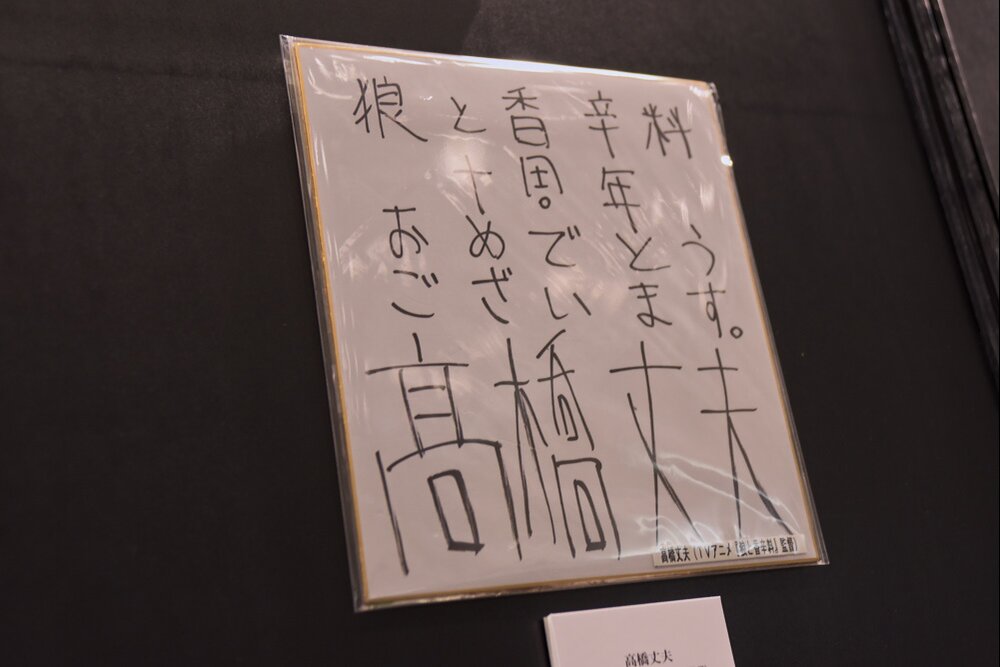 狼と香辛料
十周年
おめでとう
ございます。
高橋丈夫
高橋丈夫(TVアニメ『狼と香辛料』監督)
高橋丈夫